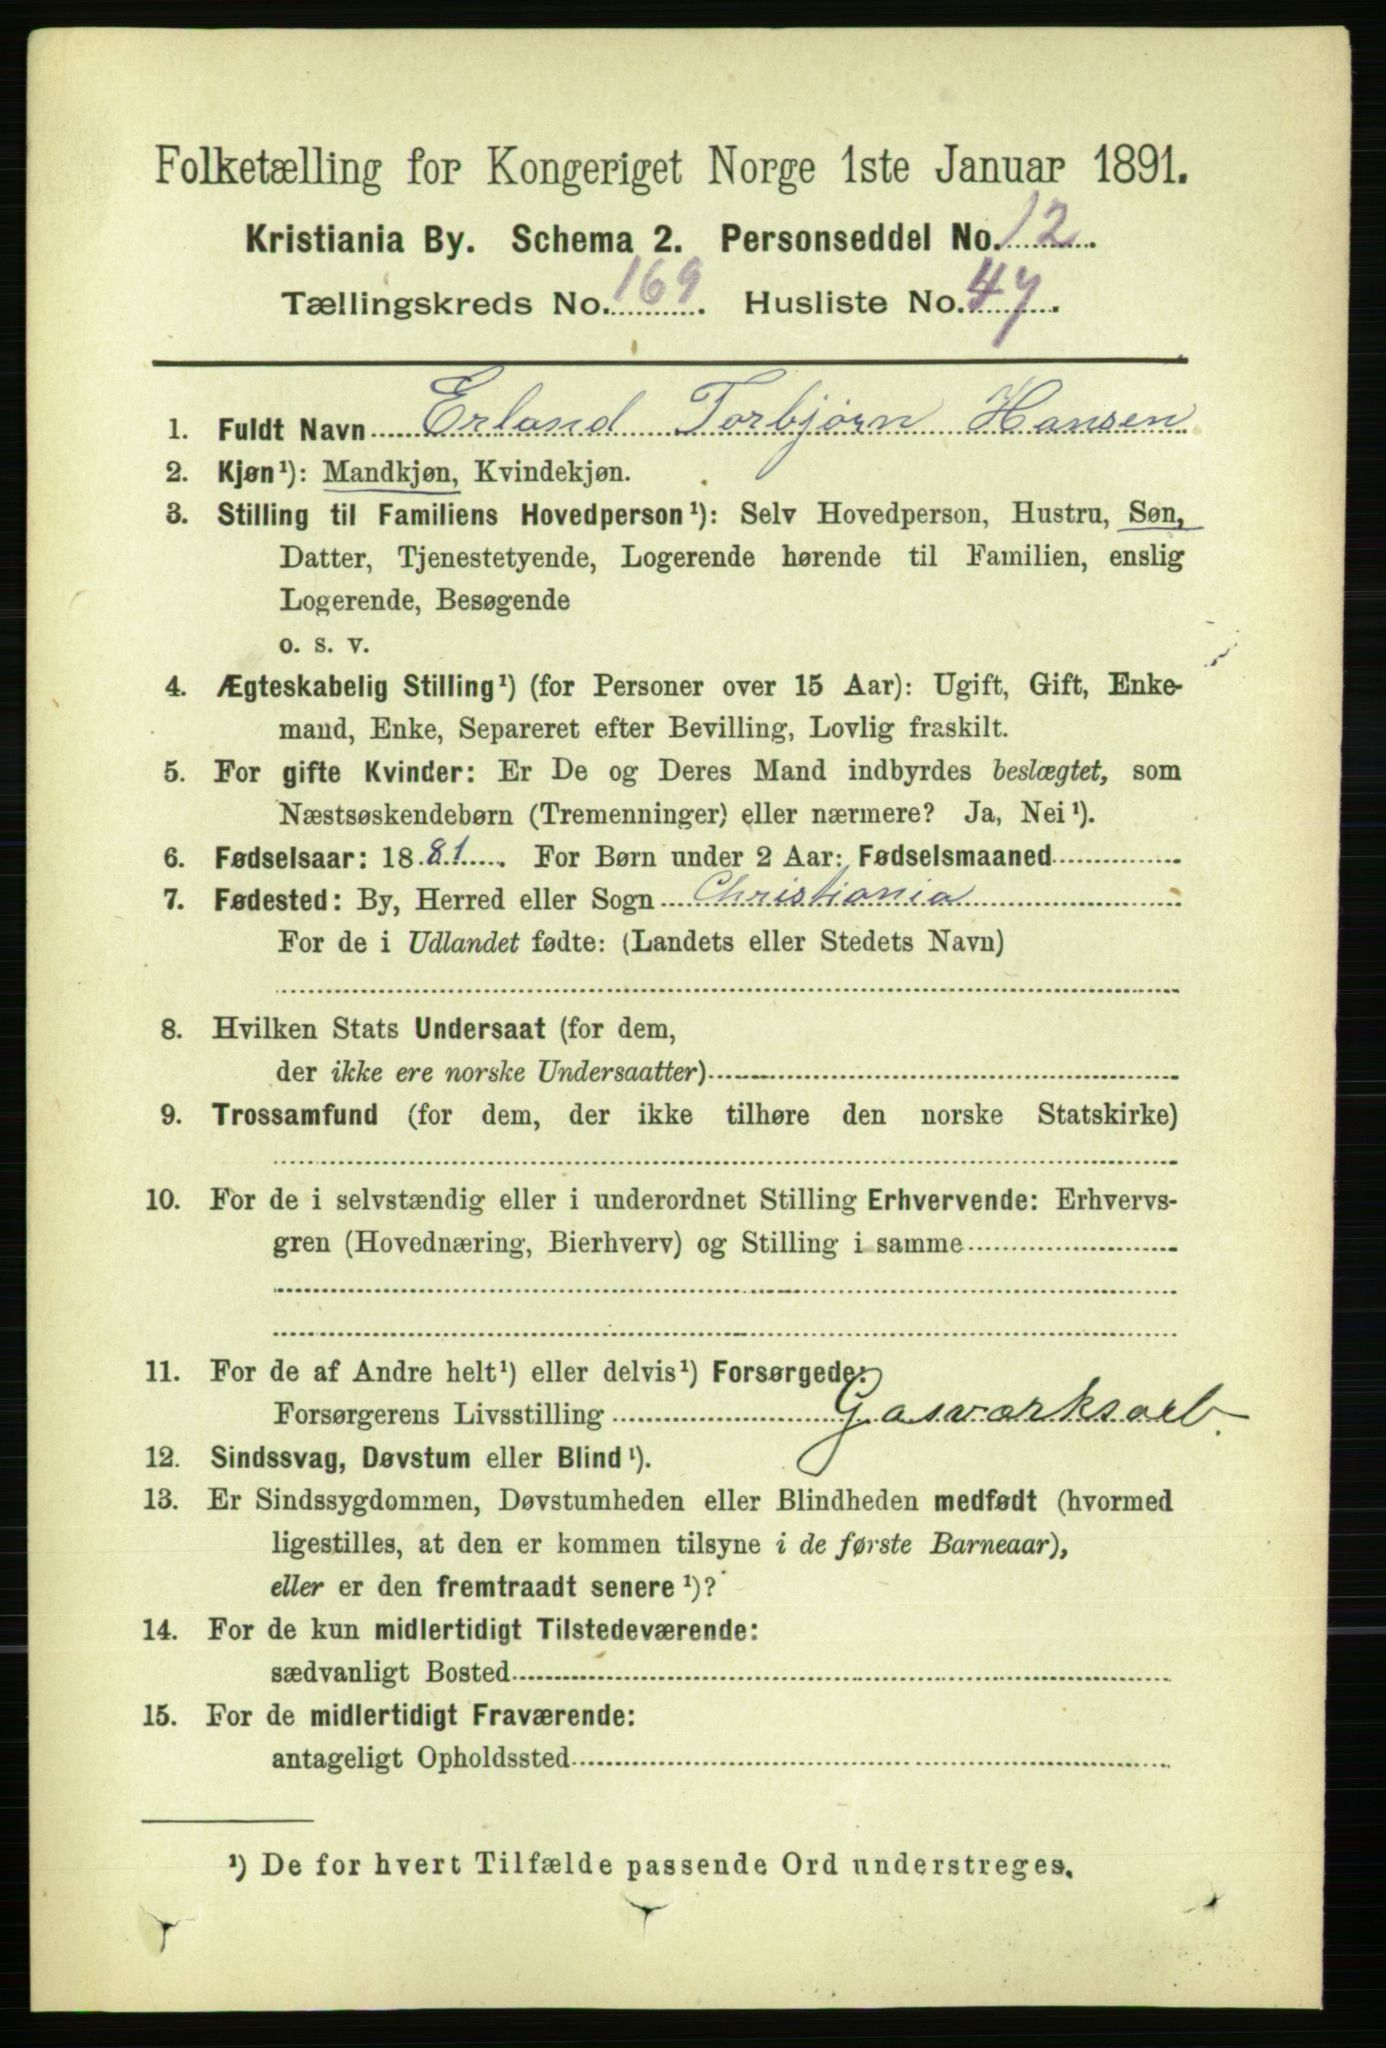 Folketælling for Kongeriget Norge 1ste Januar 1891.
Kristiania By. Schema 2. Personseddel No. 12.
Tællingskreds No. 169. Husliste No. 47.
1. Fuldt Navn Erland Torbjørn Hansen
2. Kjøn¹): Mandkjøn, Kvindekjøn.
3. Stilling til Familiens Hovedperson¹): Selv Hovedperson, Hustru, Søn,
Datter, Tjenestetyende, Logerende hørende til Familien, enslig
Logerende, Besøgende
o. s. v.
4. Ægteskabelig Stilling¹) (for Personer over 15 Aar): Ugift, Gift, Enke-
mand, Enke, Separeret efter Bevilling, Lovlig fraskilt.
5. For gifte Kvinder: Er De og Deres Mand indbyrdes beslægtet, som
Næstsøskendebørn (Tremenninger) eller nærmere? Ja, Nei¹).
6. Fødselsaar: 1881. For Børn under 2 Aar: Fødselsmaaned
7. Fødested: By, Herred eller Sogn Christiania
For de i Udlandet fødte: (Landets eller Stedets Navn)
8. Hvilken Stats Undersaat (for dem,
der ikke ere norske Undersaatter)
9. Trossamfund (for dem, der ikke tilhøre den norske Statskirke)
10. For de i selvstændig eller i underordnet Stilling Erhvervende: Erhvervs-
gren (Hovednæring, Bierhverv) og Stilling i samme
11. For de af Andre helt¹) eller delvis¹) Forsørgede:
Forsørgerens Livsstilling Gasværksarb.
12. Sindssvag, Døvstum eller Blind¹).
13. Er Sindssygdommen, Døvstumheden eller Blindheden medfødt (hvormed
ligestilles, at den er kommen tilsyne i de første Barneaar),
eller er den fremtraadt senere¹)?
14. For de kun midlertidigt Tilstedeværende:
sædvanligt Bosted
15. For de midlertidigt Fraværende:
antageligt Opholdssted
¹) De for hvert Tilfælde passende Ord understreges.